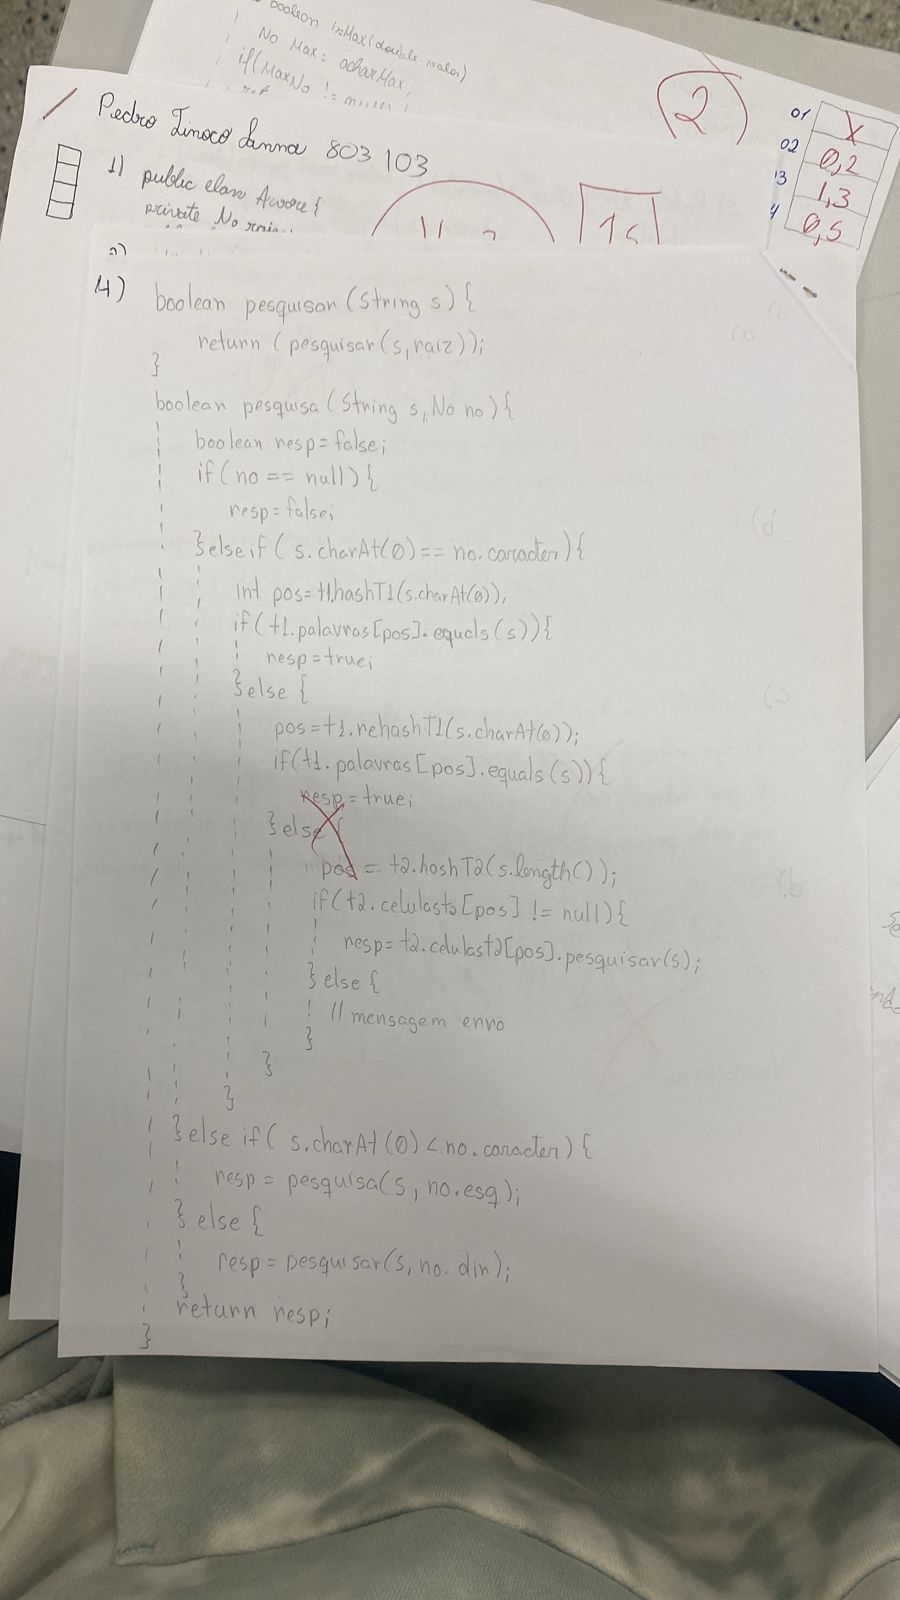 boolean isMax(double valor)
No Max = acharMax;
if(MaxNo != null)
2
01 X
02 0,2
13 1,3
4 0,5
Pedro Tinoco Sanna 803 103
1) public class Arvore {
private No raiz;
2)
4) boolean pesquisar (String s) {
return (pesquisar(s,raiz));
}
boolean pesquisa (String s, No no) {
boolean resp = false;
if (no == null) {
resp = false;
} else if ( s.charAt(0) == no.caracter) {
int pos = t1.hashT1(s.charAt(0));
if (t1.palavras[pos].equals(s)) {
resp = true;
} else {
pos = t1.rehashT1(s.charAt(0));
if (t1.palavras[pos].equals(s)) {
resp = true;
} else {
pos = t2.hashT2(s.length());
if (t2.celulast2[pos] != null) {
resp = t2.celulast2[pos].pesquisar(s);
} else {
// mensagem erro
}
}
}
} else if ( s.charAt(0) < no.caracter) {
resp = pesquisa(s, no.esq);
} else {
resp = pesquisar(s, no.dir);
}
return resp;
}